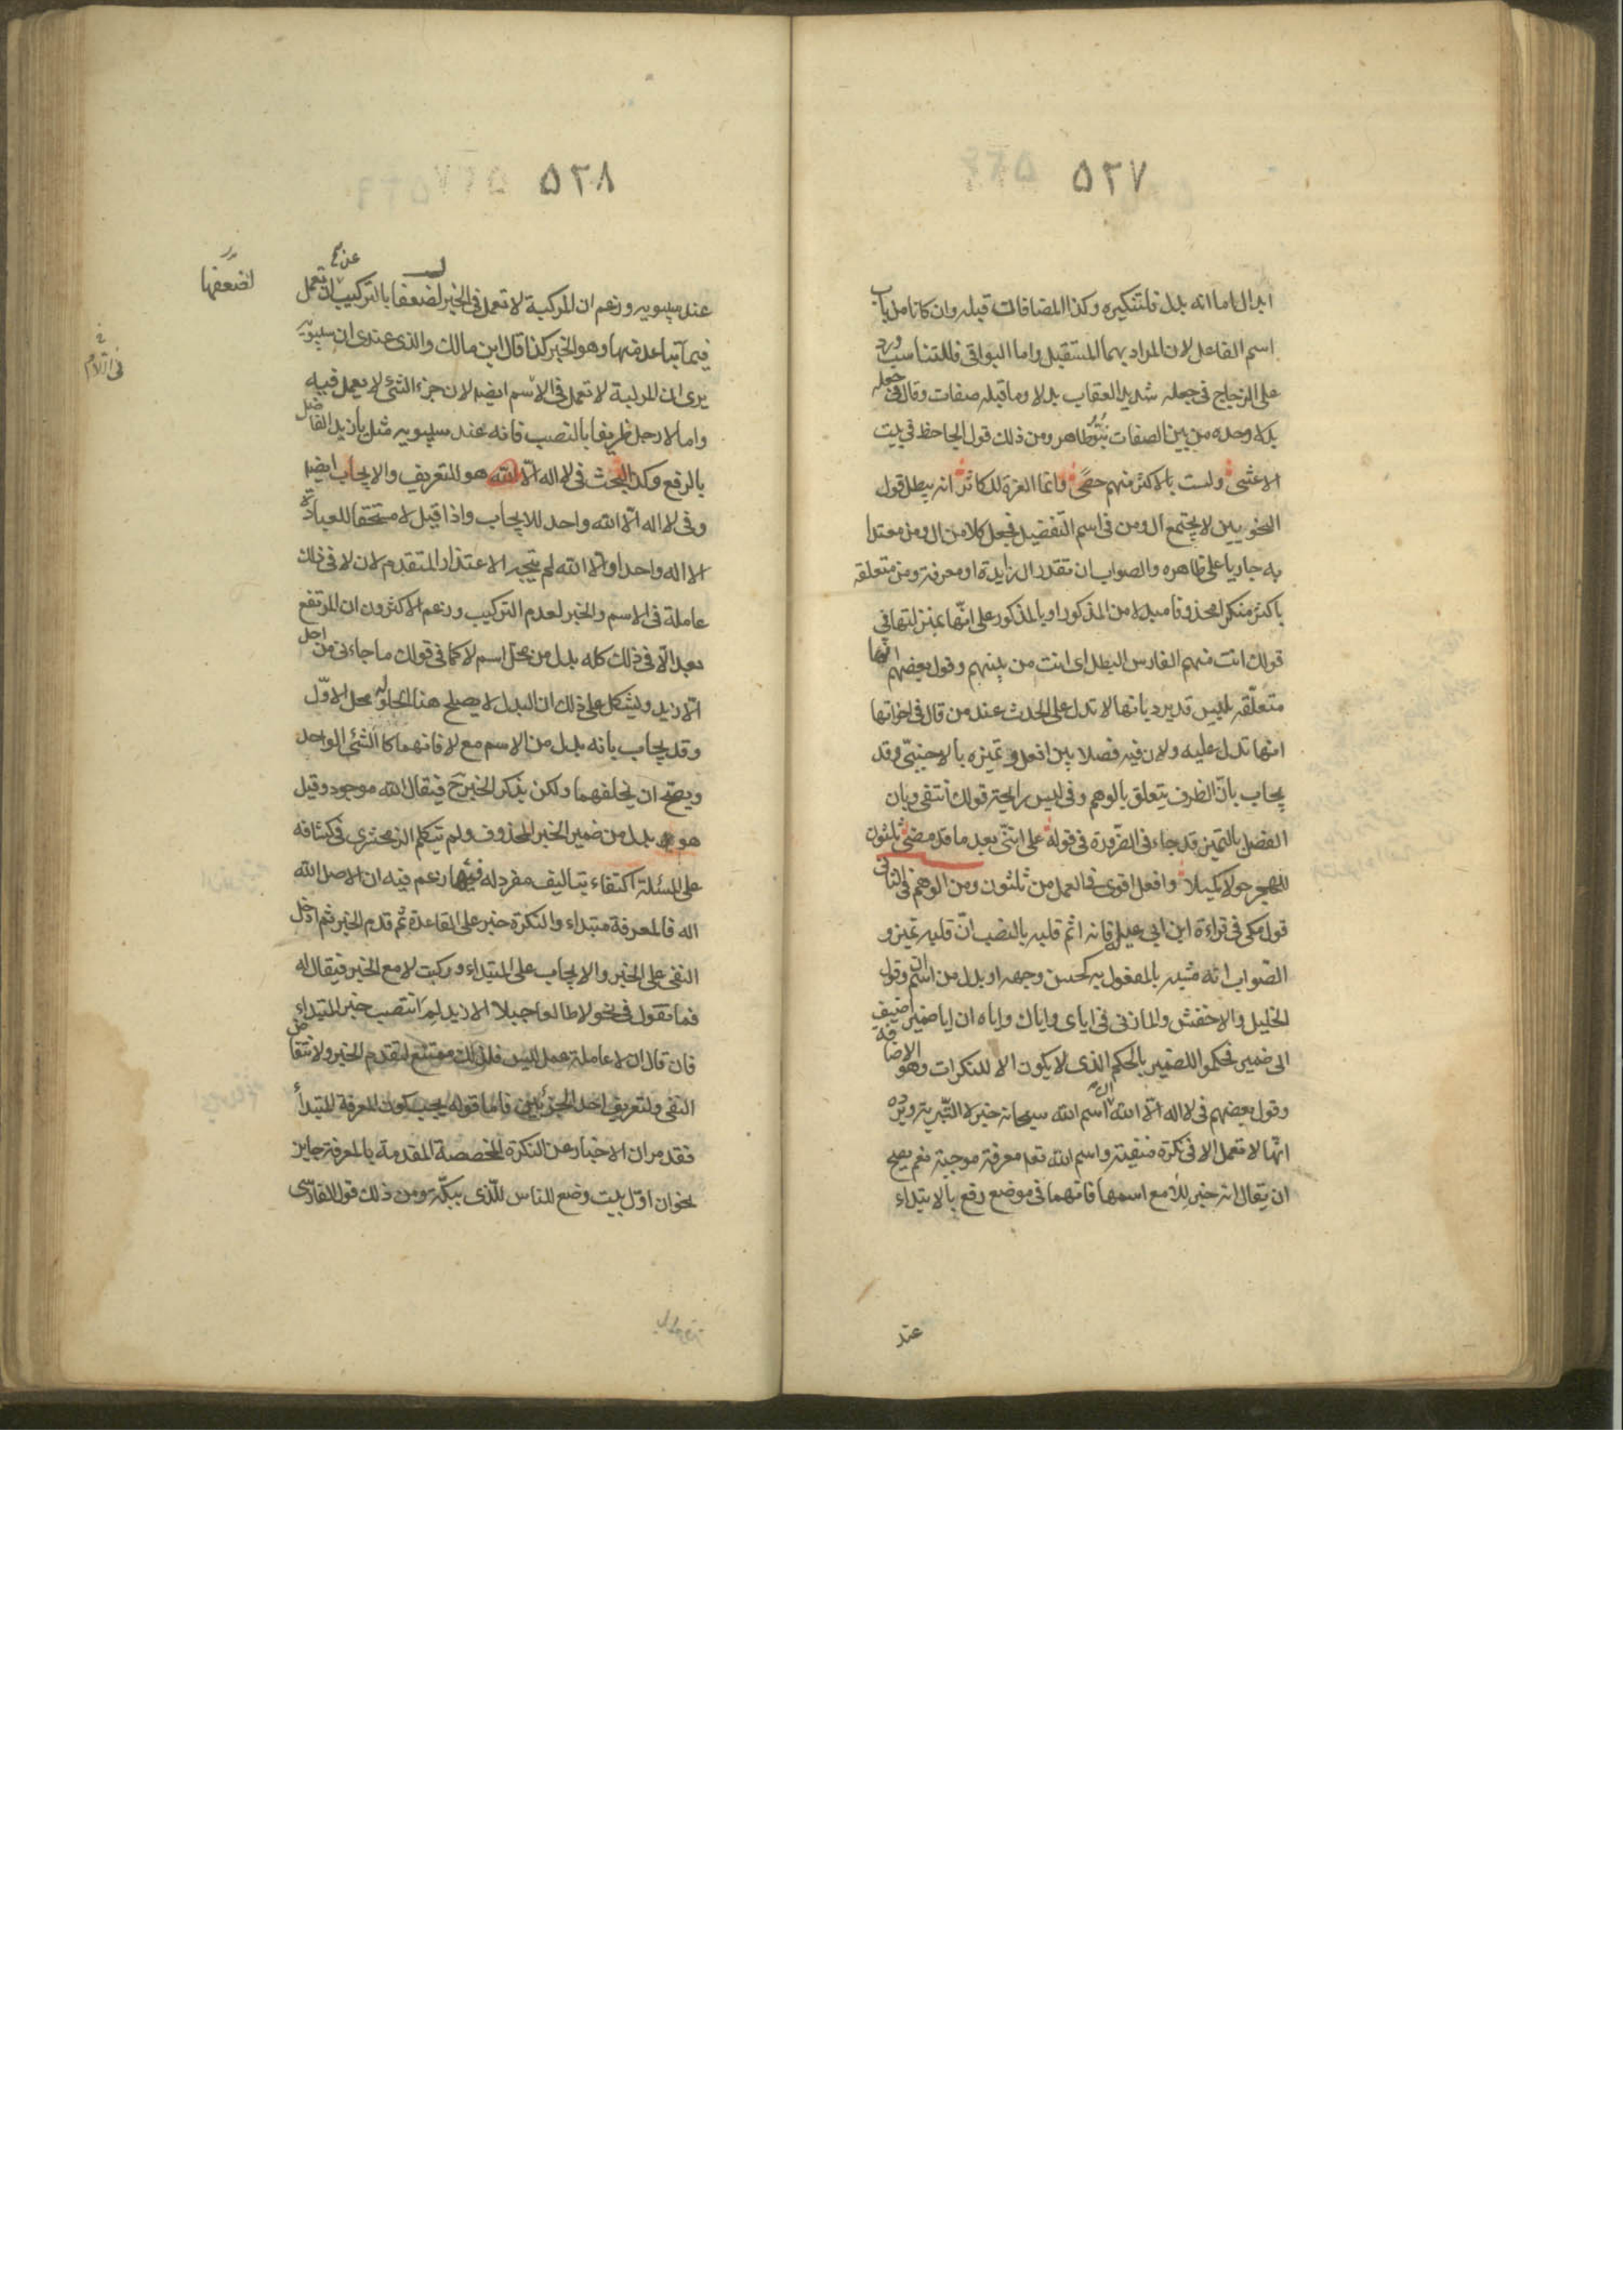 ٥٢٧
ابدال اما انه بدل فلتنكيره وكذا المضافات قبله وان كانا من باب
اسم الفاعل لان المراد بهما المستقبل واما البواقى فللتناسب ورد
على الزجاج فى جعله شديد العقاب بدلا وما قبله صفات وقال فى جعله
بدلا وحده من بين الصفات نبو ظاهر ومن ذلك قول الجاحظ فى بيت
الاعشى ولست بالاكثر منهم حصى وانما العزة للكاثر انه يبطل قول
النحويين لا يجتمع ال ومن فى اسم التفضيل فجعل كلا من ال ومن معتدا
به جاريا على ظاهره والصواب ان تقدر ال زايدة او معرفة ومن متعلقه
باكثر منكرا محذوفا مبدلا من المذكور او بالمذكور على انها بمنزلتها فى
قولك انت منهم الفارس البطل اى انت من بينهم وقول بعضهم انها
متعلقه بليس قد يرد بانها لا تدل على الحدث عند من قال فى اخواتها
انها تدل عليه ولان فيه فصلا بين افعل وتميزه بالاجنبى وقد
يجاب بان الظرف يتعلق بالوهم وفى ليس رايحة قولك انتفى وبان
الفصل بالتميز قد جاء فى الضرورة فى قوله على اننى بعد ما قد مضى ثلثون
للهجر حولا كميلا وافعل اقوى فى العمل من ثلثون ومن الوهم فى الثانى
قول مكى فى قراءة ابن ابى عبلة فانه اثم قلبه بالنصب ان قلبه تميز و
الصواب انه مشبه بالمفعول به كحسن وجهه او بدل من اسم ان وقول
الخليل والاخفش والمازنى فى اياى واياك واياه ان ايا ضمير اضيف
الى ضمير فحكموا للضمير بالحكم الذى لا يكون الا للنكرات وهو الاضافة
وقول بعضهم فى لا اله الا الله ان اسم الله سبحانه خبر لا التبرية ويرده
انها لا تعمل الا فى نكرة منفية واسم الله تعا معرفة موجبة نعم يصح
ان يقال انه خبر للا مع اسمها فانهما فى موضع رفع بالابتداء
عند
٥٢٨
عند سيبويه وزعم ان المركبة لا تعمل فى الخبر لضعفا بالتركيب عن ان تعمل
لضعفها
فيما تباعد منها وهو الخبر كذا قال ابن مالك والذى عندى ان سيبويه
يرى ان المركبة لا تعمل فى الاسم ايضا لان جزء الشئ لا يعمل فيه
واما لا رجل ظريفا بالنصب فانه عند سيبويه مثل يا زيد الفاضل
بالرفع وكذا البحث فى لا اله الا الله هو للتعريف والايجاب ايضا
وفى لا اله الا الله واحد للايجاب واذا قيل لا مستحقا للعبادة
الا اله واحد او الا الله لم يتجه الاعتذار المتقدم لان لا فى ذلك
عاملة فى الاسم والخبر لعدم التركيب وزعم الاكثرون ان المرتفع
بعد الا فى ذلك كله بدل من محل اسم لا كما فى قولك ما جاءنى من احد
الا زيد ويشكل على ذلك ان البدل لا يصلح هنا لحلوله محل الاول
وقد يجاب بانه بدل من الاسم مع لا فانهما كالشئ الواحد
ويصح ان يخلفهما ولكن يذكر الخبر ح فيقال الله موجود وقيل
هو بدل من ضمير الخبر المحذوف ولم يتكلم الزمخشرى فى كشافه
على المسئلة اكتفاء بتاليف مفرد له فيها زعم فيه ان الاصل الله
اله فالمعرفة مبتداء والنكرة خبر على القاعدة ثم قدم الخبر ثم ادخل
النفى على الخبر والايجاب على المبتداء وركبت لا مع الخبر فيقال له
فما تقول فى نحو لا طالعا جبلا الا زيد لم انتصب خبر المبتداء
فان قال ان لا عاملة عمل ليس فذلك ممتنع لتقدم الخبر ولانتقاض
النفى ولتعريف احد الجزئين فاما قوله يجب كون المعرفة المبتدأ
فقد مر ان الاخبار عن النكرة المخصصة المقدمة بالمعرفة جايز
نحو ان اول بيت وضع للناس للذى ببكة ومن ذلك قول الفارسى